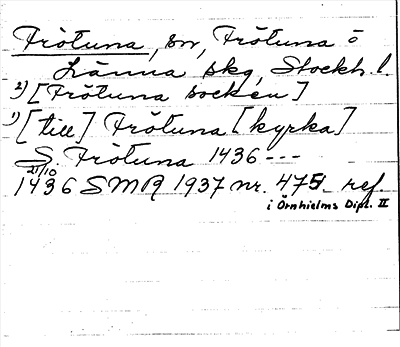 Frötuna, sn, Frötuna o
Länna skg, Stockh. l.
2) [Frötuna socken]
1) [till] Frötuna [kyrka]
S. Frötuna 1436---
21/10
1436 SMR 1937 nr. 475 ref.
i Örnhielms Dipl. II